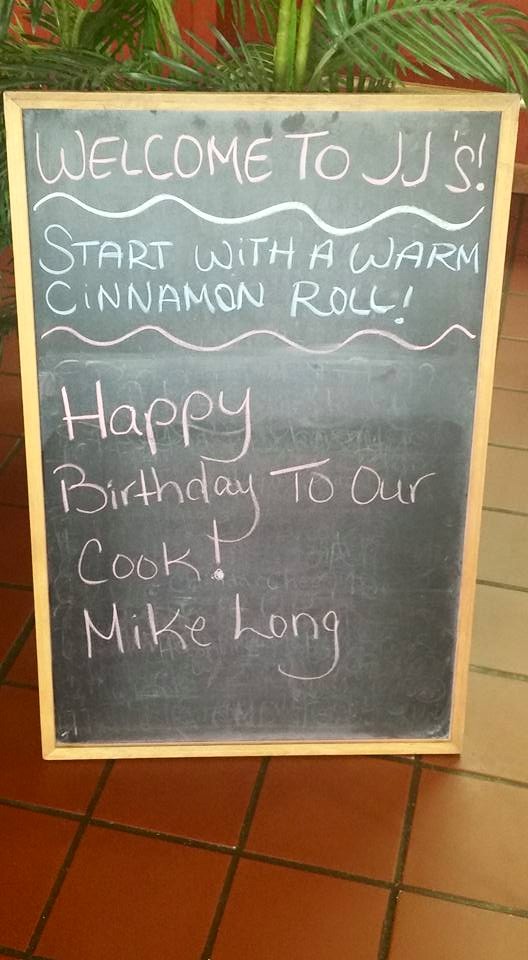 WELCOME TO JJ'S!
START WITH A WARM
CINNAMON ROLL!
Happy
Birthday To Our
Cook!
Mike Long